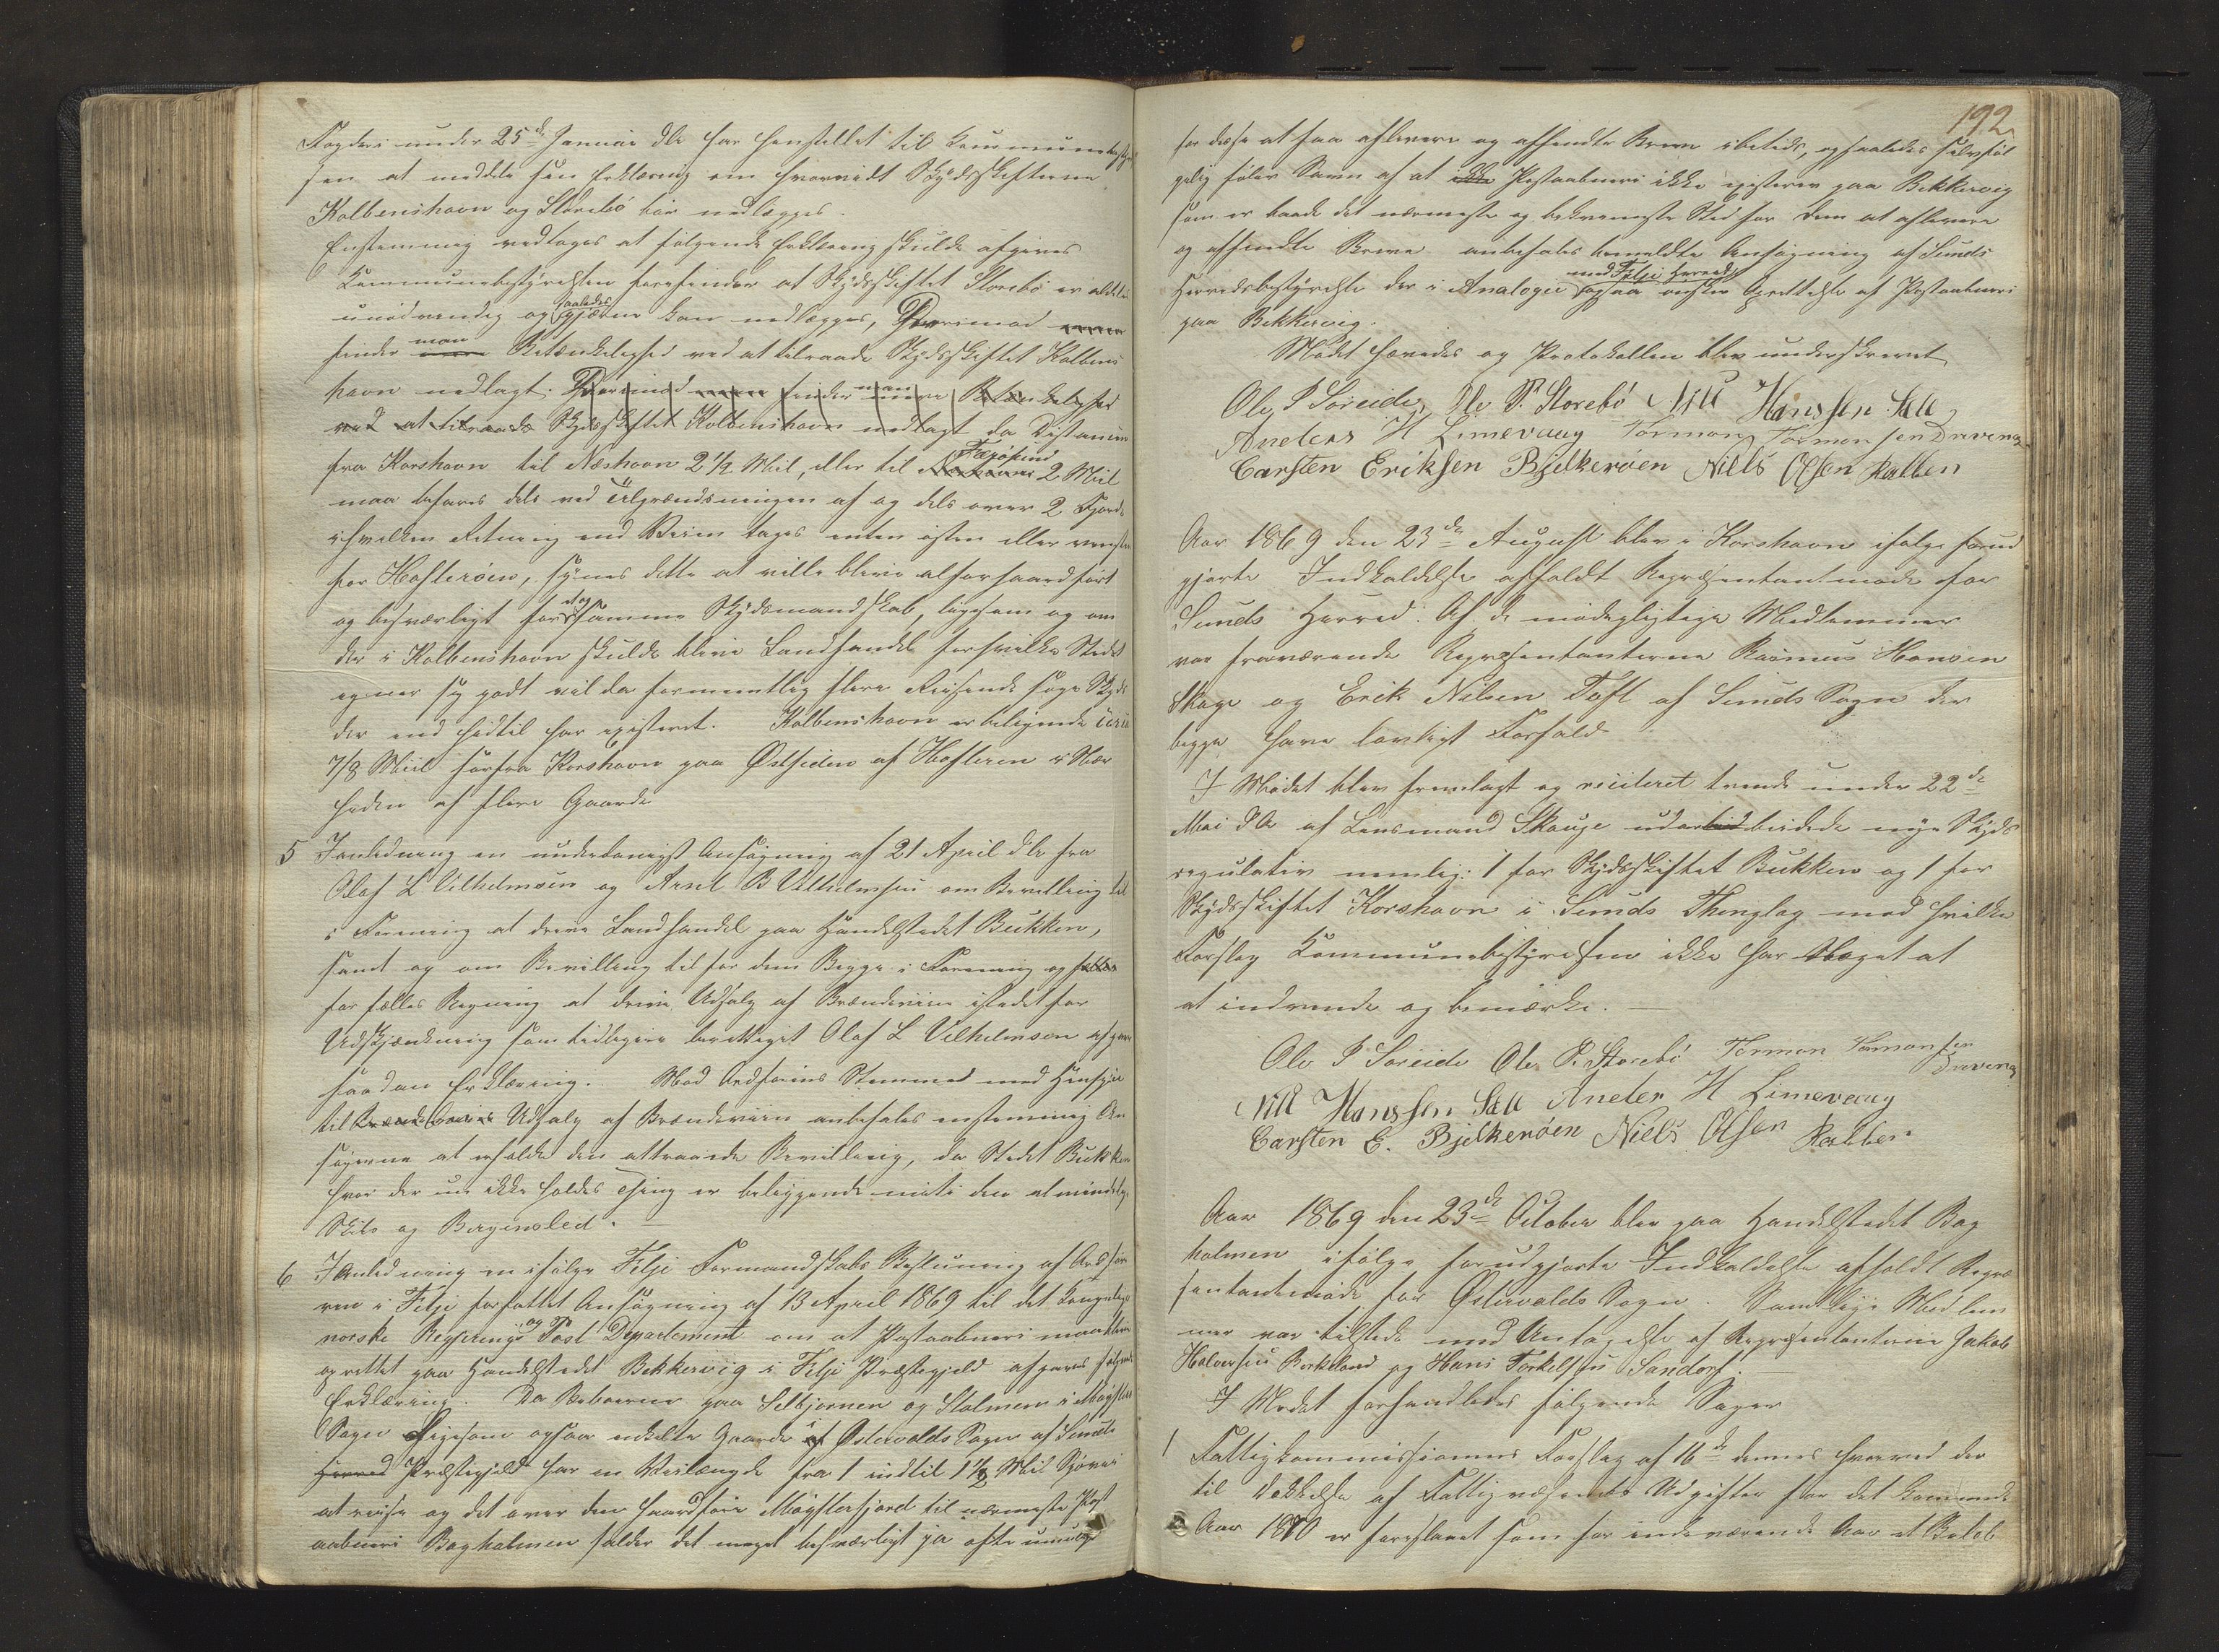 Fogderi under 25de Januar d.A. har henstillet til Kommunebesty
sen at meddele sin Erklæring om hvorvidt Skydsskifterne
Kolbenshavn og Storebö bör nedlægges.
Enstemmig vedtoges at fölgende Erklæring skulde afgives
Kommunebestyrelsen forefinder at Skydsskiftet Storebö er aldeles
unödvendig og saaledes gjerne kan nedlægges, Derimod
finder man Betænkelighed ved at tilraade Skydsskiftet Kolbens
havn nedlagt. Derimod finder man Betænkelighed
ved at tilraade Skydsskiftet Kolbenshavn nedlagt da Distancen
fra Korshavn til Næshavn 2 1/2 Miil, eller til 2 Miil
maa befares dels ved Tilgrændsningen af og dels over 2 Fjorde
i hvilken Retning end Veien tages enten östen eller vesten
for Hufteröen, synes dette at ville blive alfor haardfört
og besværligt for et og samme Skydsmandskab, ligesom og om
der i Kolbenshavn skulde blive Landhandel forhvilke Stedet
egner sig godt vil da formentlig flere Reisende söge Skyds
der end hidtil har existeret. Kolbenshavn er beligende
7/8 Miil herfra Korshavn paa Østsiden af Hufteren i Nær
heden af flere Gaarde
5 I Anledning en underdanigst Ansögning af 21 April d.A. fra
Olaf L Vilhelmsen og Arnt B Vilhelmsen om Bevilling til
i Forening at drive Landhandel paa Handelstedet Bukken,
samt og om Bevilling til for dem Begge i Forening og
for fælles Regning at drive Udsalg af Brændeviin istedetfor
Udskjænkning som tidligere berettiget Olaf L Vilhelmsen afgaves
saadan Erklæring. Mod Ordförens Stemme med Hensyn
til Udsalg af Brændeviin anbefales enstemmig An
sögerne at erholde den attraaede Bevilling, da Stedet Bukken
hvor der nu ikke holdes Thing er beliggende midt i den almindelige
Skibs og Bergensled. —
6 I Anledning en ifölge Fitje Formandskabs Beslutning af Ordfö
ren i Fitje forfattet Ansögning af 13 April 1869 til det Kongelige
norske Regjerings og Post Departement om at Postaabneri maatte
oprettet paa Handelstedet Bekkervig i Fitje Præstegjeld afgaves fölgende
Erklæring. Da Beboerne paa Selbjornen og Stolmen i Mögster
Sogn ligesom ogsaa enkelte Gaarde i Östervolds Sogn af Sunds
Herred Præstegjeld har en Veilængde fra 1 indtil 1 1/2 Miil Söveis
at reise og det over den haardföre Mögsterfjord til nærmeste Post
aabneri Bagholmen falder det meget besværligt ja ofte umuligt
192
for disse at faa aflevere og afsendte Breve i betids, og saaledes selvföl
gelig föler Savn af at ikke Postaabneri ikke existerer paa Bekkervig
som er baade det nærmeste og bekvemmeste Sted for dem at aflevere
og afsendte Breve anbefales bemeldte Ansögning af Sunds
Herredsbestyrelse der i Analogie med Fitje Herred ogsaa önsker Oprettelse af Postaabneri
paa Bekkervig.
Mödet hævedes og Protokollen blev underskrevet
Ole P Söreide, Ole P. Storebö Nill Hanssen Sell
Anders H Limevaag Tormon Tormonsen Drivenes
Carsten Eriksen Bjelkeröen Niels Olsen Kalben
Aar 1869 den 23de August blev i Korshavn ifölge forud
gjorte Indkaldelse afholdt Repræsentantmöde for
Sunds Herred. Af de mödepligtige Medlemmer
var fraværende Repræsentanterne Rasmus Hansen
Skage og Erik Nilsen Toft af Sunds Sogn der
begge have lovligt Forfald
I Mödet blev fremlagt og reciteret tvende under 22de
Mai d A af Lensmand Skauge udarbeidede nye Skyds
regulativ nemlig: 1 for Skydsskiftet Bukken og 1 for
Skydsskiftet Korshavn i Sunds Thinglag mod hvilke
Forslag Kommunebestyrelsen ikke har Noget at
at indvende og bemærke. —
Ole P Söreide Ole P. Storebö Tormon Tormonsen
Drivenes
Nill Hanssen Sell Anders H Limevaag
Carsten E. Bjelkeröen Niels Olsen Kalben
Aar 1869 den 23de October blev paa Handelstedet Bag
holmen ifölge forudgjorte Indkaldelse afholdt Repræ
sentantmöde for Östervolds Sogn. Samtlige Medlem
mer var tilstede med Undtagelse af Repræsentanterne Jakob
Halversen Birkeland og Hans Torkelsen Sandorf. —
I Mödet forhandledes fölgende Sager
1 Fattigkommissionens Forslag af 16de dennes hvorved der
til Dækkelse af Fattigvæsenets Udgifter for det kommende
Aar 1870 er foreslaaet som for indeværende Aar et Belöb